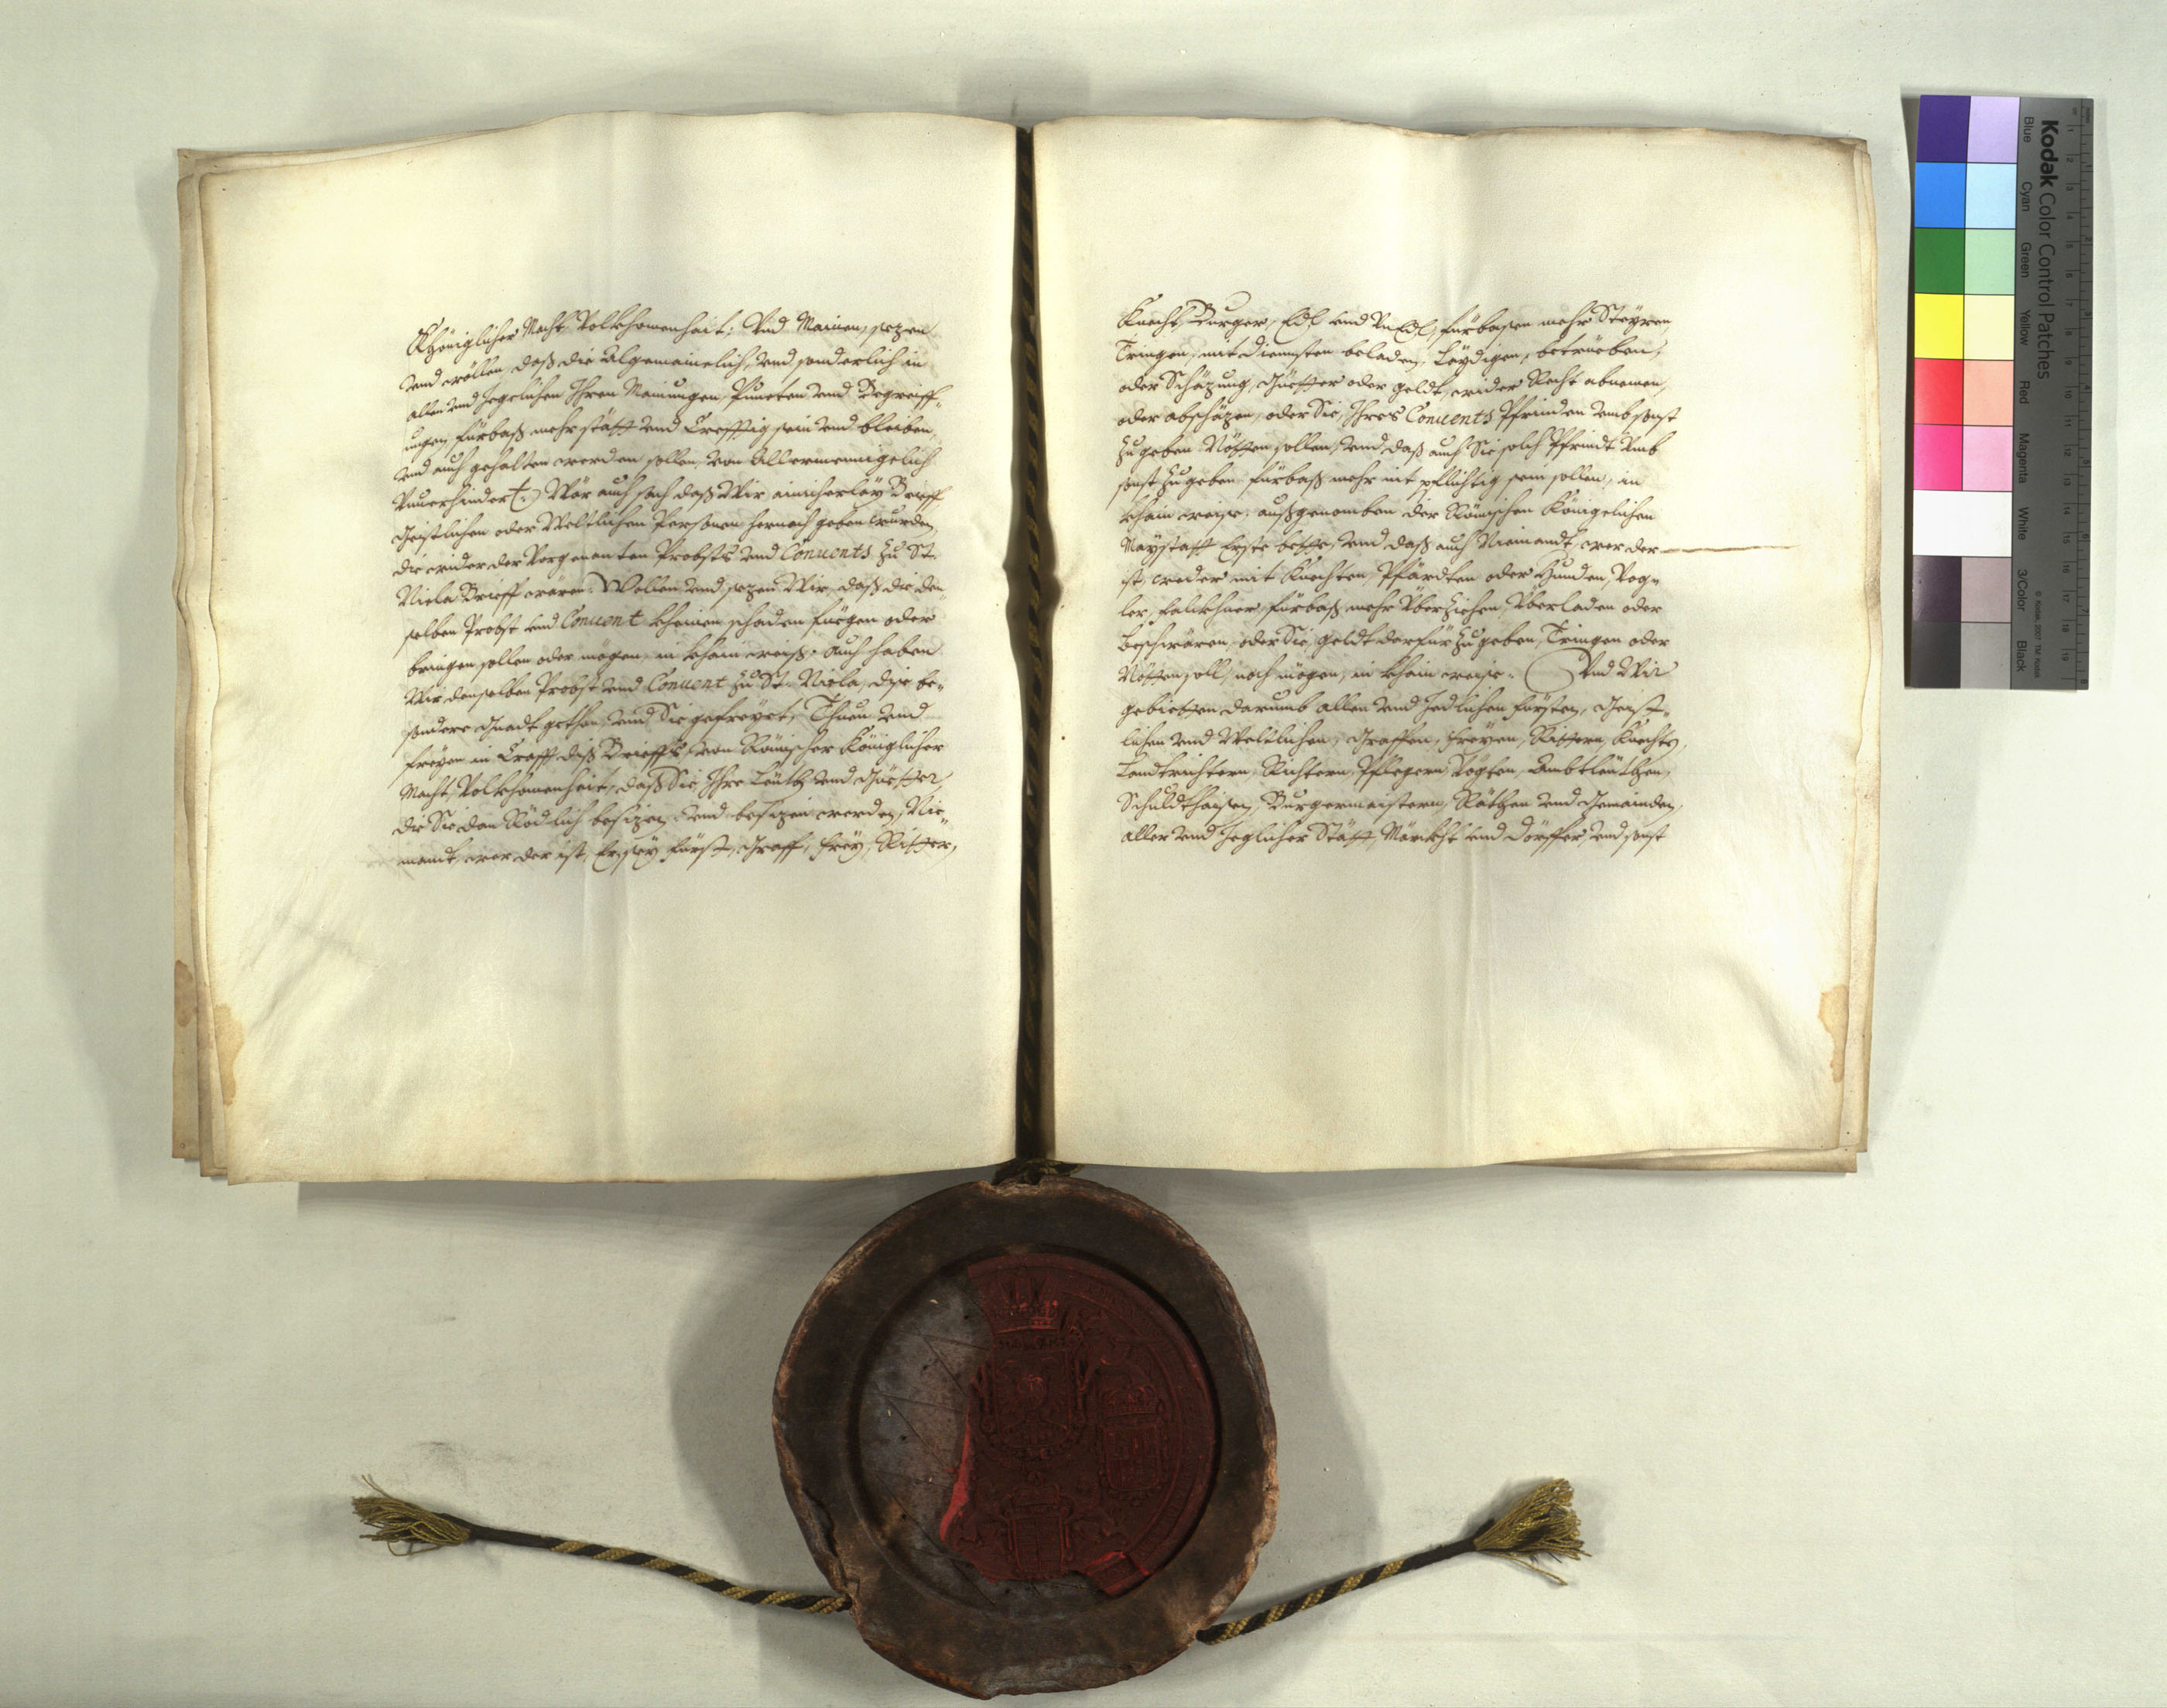 Khöniglicher Macht, Volkhomenheit: Vnd Mainen, sezen
vnd wöllen, daß die Algemainelich, vnd sonderlich in
allen vnd Jegelichen Ihren Mainungen, Puncten vnd Begreiff-
ungen, fürbaß mehr stätt vnd Crefftig sein vnd bleiben,
vnd auch gehalten werden sollen, von Allermennigelich
Vnuerhindert. Wär auch sach daß Wir ainicherlaÿ Brieff
Geistlichen oder Weltlichen Personen hernach geben wurden,
die wider der Vorgenanten Probsts vnd Conuents zu St.
Nicla Brieff wären. Wollen vnd sezen Wir, daß die den
selben Probst vnd Conuent kheinen schaden fuegen oder
bringen sollen oder mögen, in khain weiß. Auch haben
Wir denselben Probst vnd Conuent zu St. Nicla, dise be-
sondere Gnadt gethan, vnd Sie gefreÿet, Thuen vnd
freÿen in Crafft diß Brieffs, von Römischer Königlicher
Macht, Volkhomenheit, daß Sie, Ihre Leüth vnd Güetter,
die Sie dan Rödlich besizen, vnd besizen werden, Nie-
mandt, wer der ist, Er seÿ fürst, Graff, freÿ, Ritter,
Knecht, Burger, Edl vnd VnEdl, fürbasen mehr Steÿren,
Tringen, mit Diennsten beladen, Laÿdigen, betrüeben,
oder Schäzung, Güetter oder geldt, wider Recht abnemen,
oder abschäzen, oder Sie, Ihres Conuents Pfrinden vmbsonst
zu geben Nötten sollen, vnd daß auch Sie solch Pfrindt vmb
sonst zu geben fürbaß mehr nit pflichtig sein sollen, in
khain weise: außgenomben der Römischen Königelichen
Maÿstatt Erste bette, vnd daß auch Niemandt, wer der
ist, weder mit Knechten, Pfärdten oder Hunden, Vog-
ler, falckhner, fürbaß mehr Vberziehen, Vberladen oder
beschwären, oder Sie, geldt darfür zu geben, Tringen oder
Nötten soll, noch mögen, in khain weise. Vnd Wir
gebietten darumb allen vnd Jedlichen fürsten, Geist-
lichen vnd Weltlichen, Graffen, freÿen, Rittern, Knechten,
Landtrichtern, Richtern, Pflegern, Vögten, Ambtleüthen,
Schuldthaisen, Burgermaistern, Räthen vnd Gemainden,
aller vnd Jeglicher Stätt, Märckht vnd Dörffer, vnd sonst
Kodak Color Control Patches
© Kodak, 2007 TM: Kodak
Blue Cyan Green Yellow Red Magenta White 3/Color Black